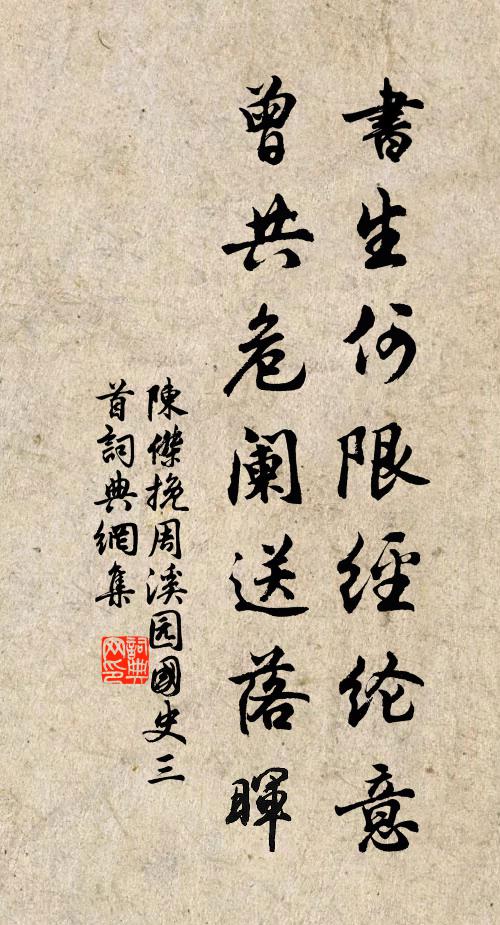 書生何限經纶意
曾共危阑送落暉
陳傑挽周溪园國史三
首詞典網集
詞典
网印